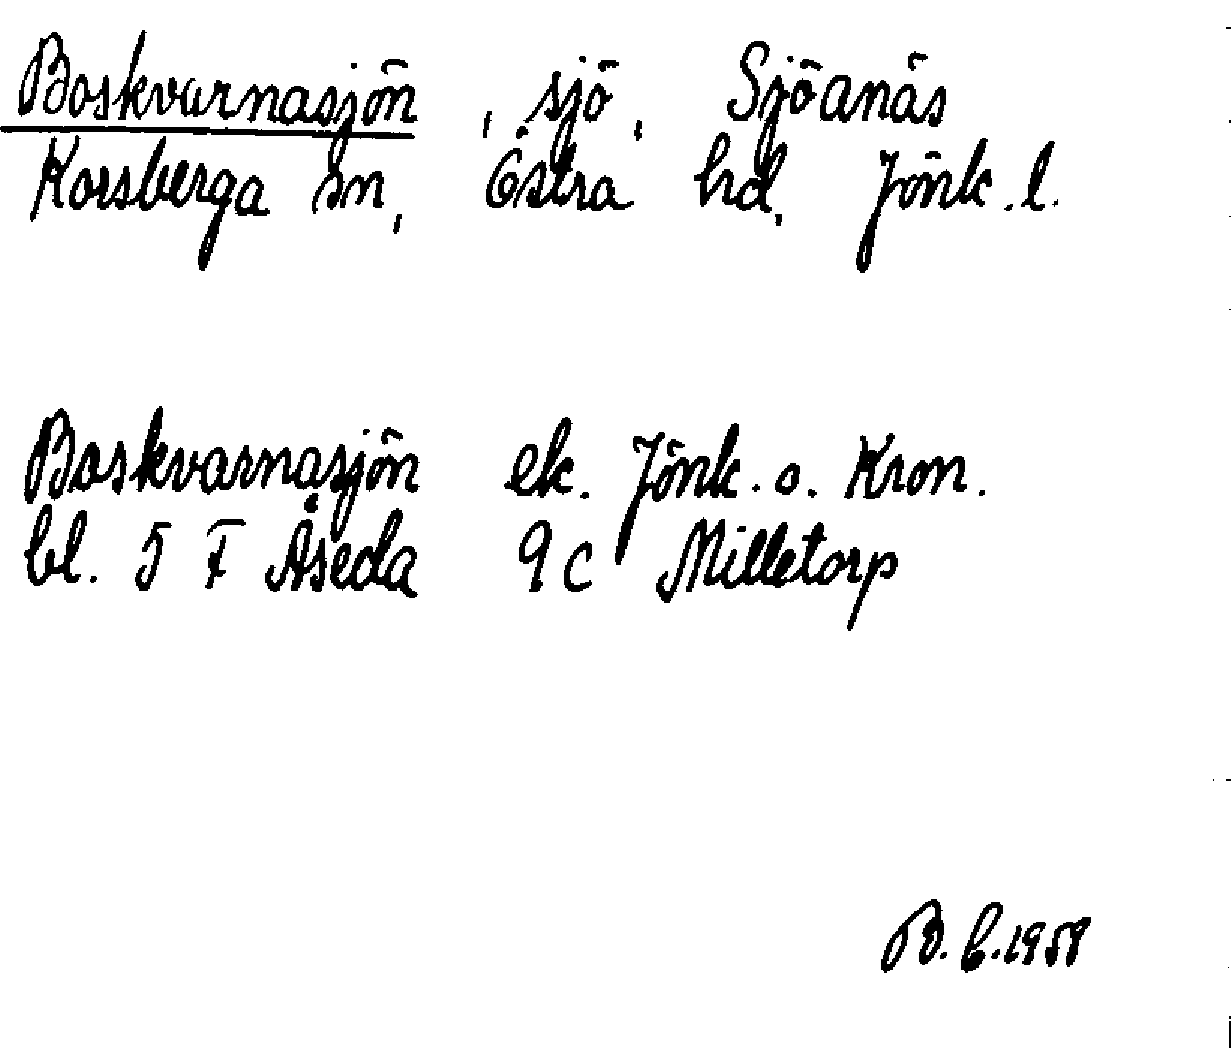 Boskvarnasjön, sjö, Sjöanäs
Korsberga sn, Östra hd, Jönk.l.
Boskvarnasjön ek. Jönk. o. Kron.
bl. 5 F Åseda 9 c Milletorp
B. C. 1959